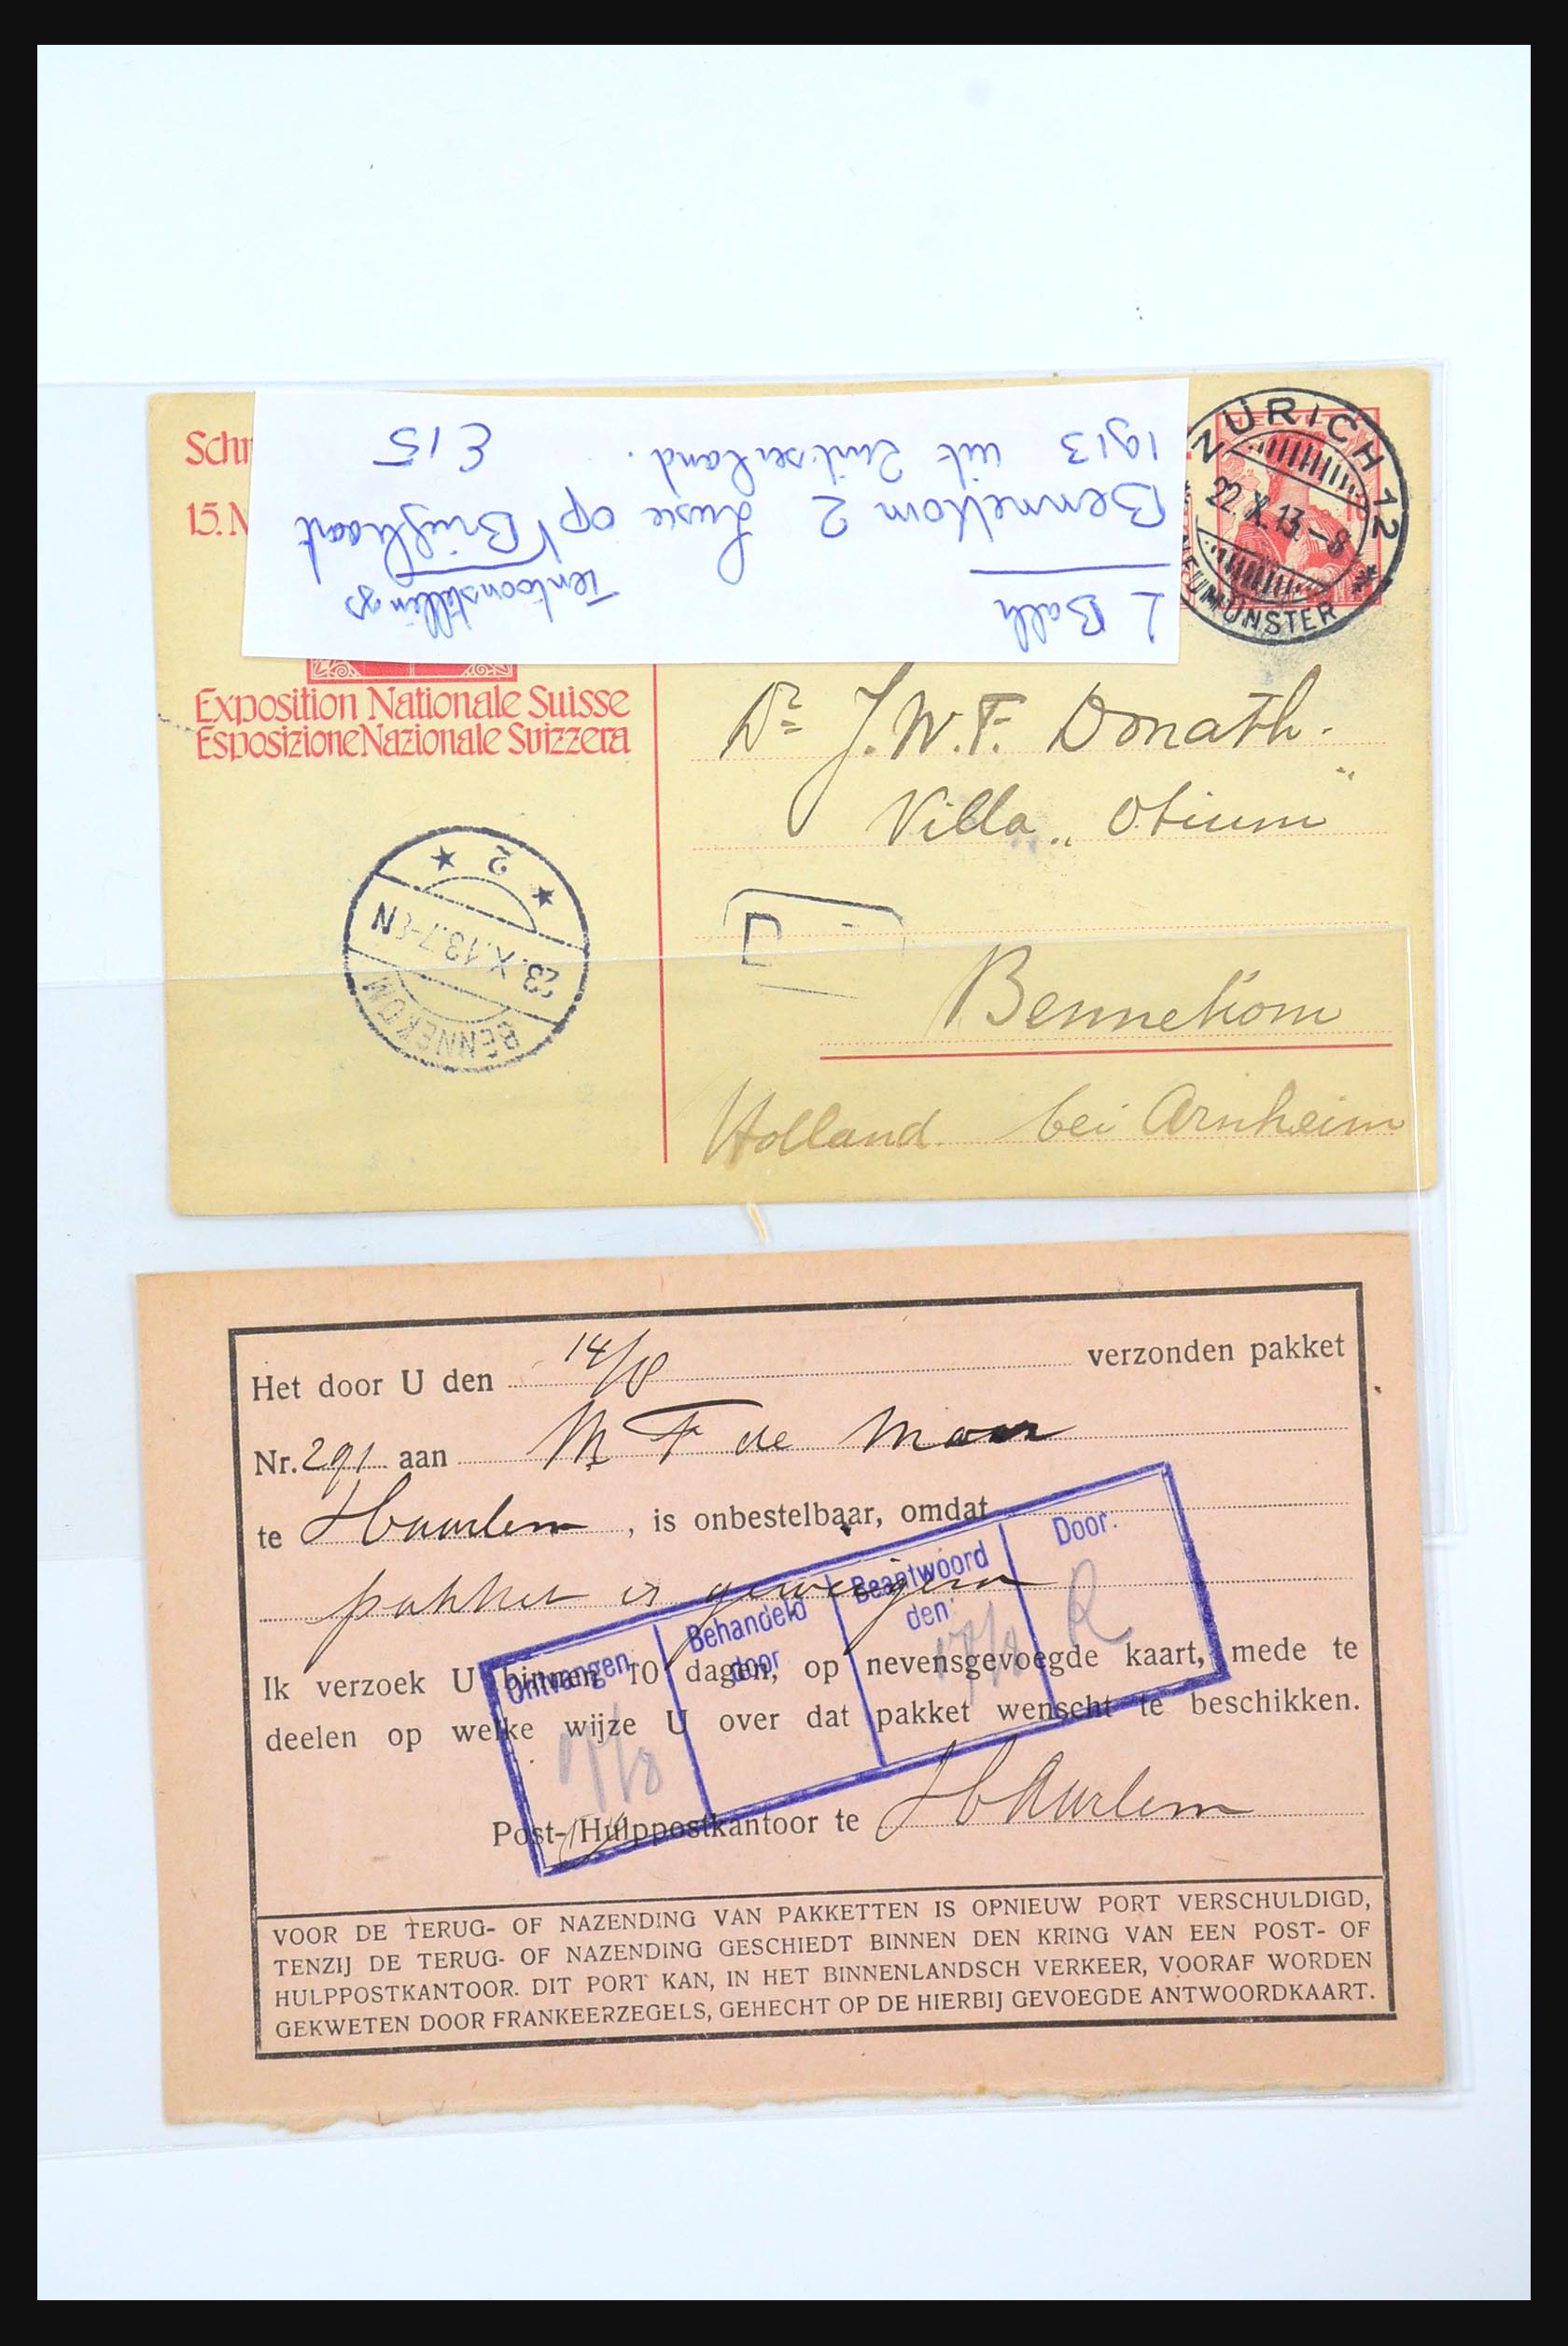 Schr
15. M
L Balk
Tentoonstellings
Bennekom 2 Lusie op Briefkaart
1913 uit Zwitserland. £15
ZÜRICH 12
22.X.13.-8
NEUMÜNSTER
HELVETIA
Exposition Nationale Suisse
Esposizione Nazionale Svizzera
Dr J.W.F. Donath.
Villa „Otium"
Bennekom
Holland. bei Arnheim
BENNEKOM
23.X.13.7-8N
2
Het door U den 14/8 verzonden pakket
Nr. 291 aan M F de Moor
te Haarlem, is onbestelbaar, omdat
pakket is geweigerd
Ik verzoek U binnen 10 dagen, op nevensgevoegde kaart, mede te
deelen op welke wijze U over dat pakket wenscht te beschikken.
Post- Hulppostkantoor te Haarlem
Ontvangen
Behandeld door
Beantwoord den:
17/8
Door:
R
VOOR DE TERUG- OF NAZENDING VAN PAKKETTEN IS OPNIEUW PORT VERSCHULDIGD,
TENZIJ DE TERUG- OF NAZENDING GESCHIEDT BINNEN DEN KRING VAN EEN POST- OF
HULPPOSTKANTOOR. DIT PORT KAN, IN HET BINNENLANDSCH VERKEER, VOORAF WORDEN
GEKWETEN DOOR FRANKEERZEGELS, GEHECHT OP DE HIERBIJ GEVOEGDE ANTWOORDKAART.